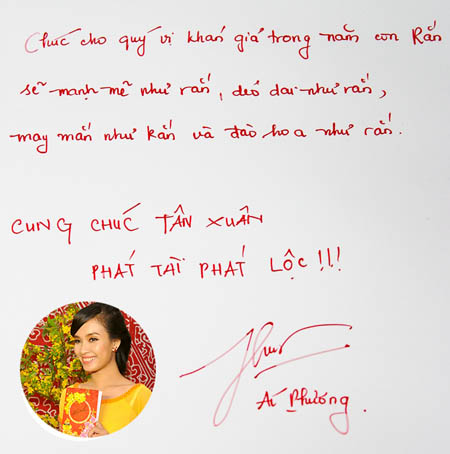 Chúc cho quý vị khán giả trong năm con Rắn
sẽ mạnh mẽ như rắn, dẻo dai như rắn,
may mắn như rắn và đào hoa như rắn.
CUNG CHÚC TÂN XUÂN
PHÁT TÀI PHÁT LỘC !!!
Ái Phương.